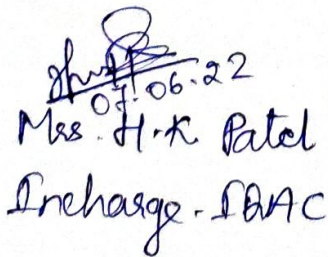 07.06.22
Mrs. H.K Patel
Incharge - IQAC